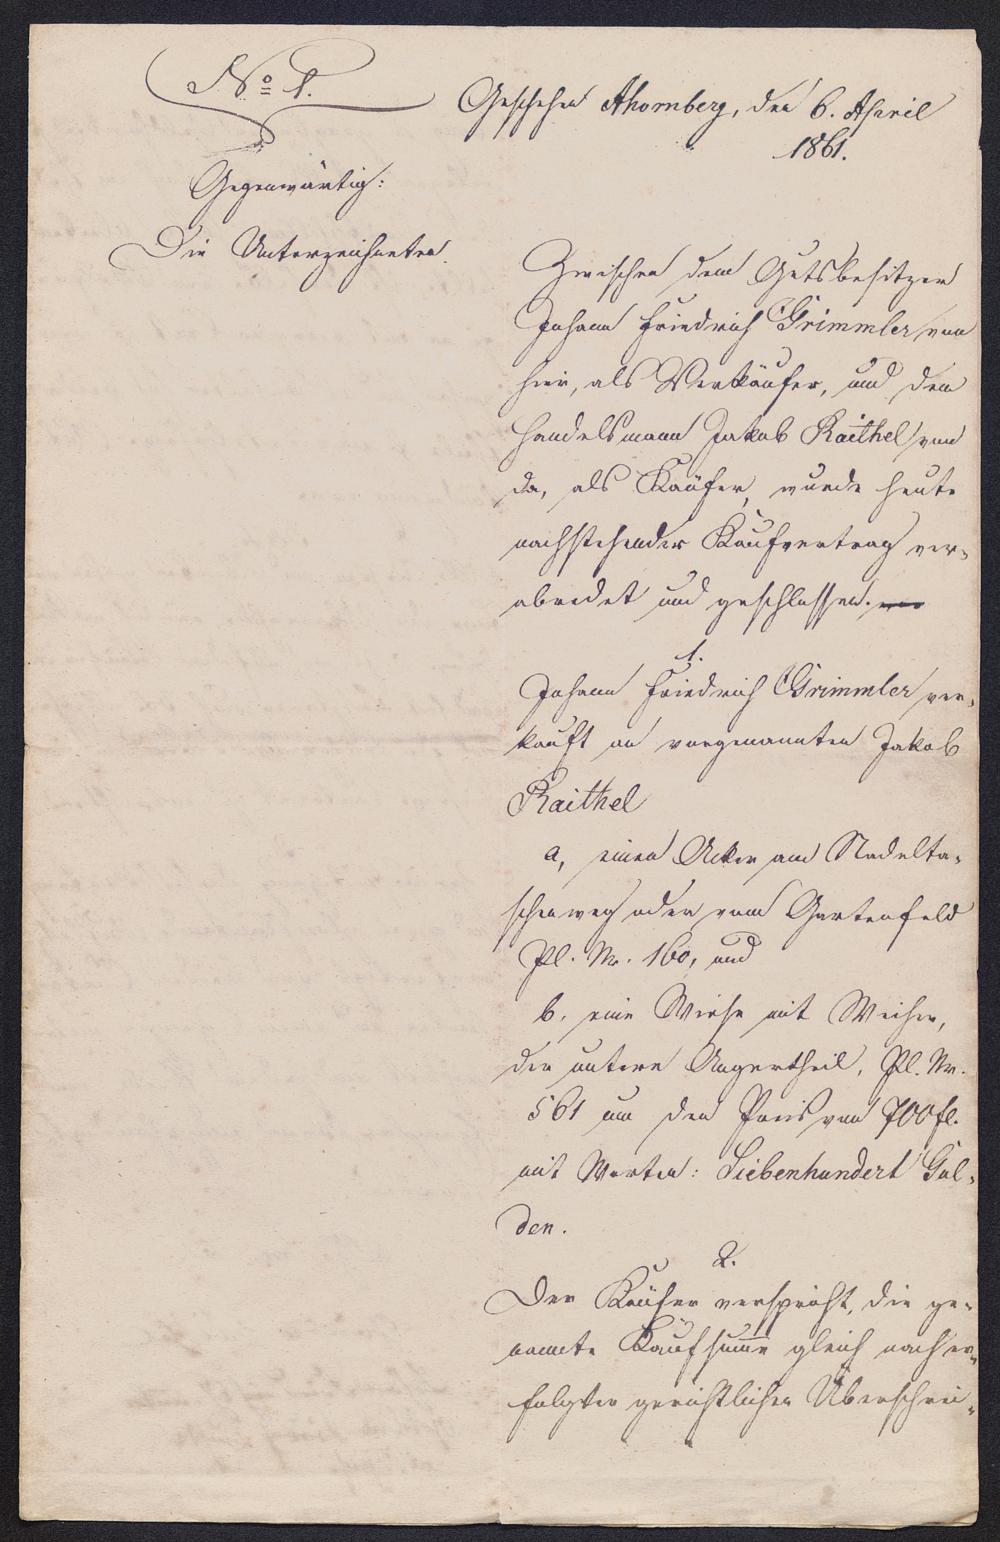 No 1.
Geschehen Ahornberg, den 6. April
1861.
Gegenwärtig:
Die Unterzeichneten.
Zwischen dem Gutsbesitzer
Johann Friedrich Grimmler von
hier, als Verkäufer, und dem
Handelsmann Jakob Raithel von
da, als Käufer, wurde heute
nachstehender Kaufvertrag ver-
abredet und geschlossen.
1.
Johann Friedrich Grimmler ver-
kauft an vorgenannten Jakob
Raithel
a, einen Acker am Nadelta-
schenweg oder vom Gartenfeld
Pl. Nr. 160, und
b. eine Wiese mit Weiher,
der untere Angertheil, Pl. Nr.
561 um den Preis von 700 fl.
mit Worten: Siebenhundert Gul-
den.
2.
Der Käufer verspricht, die ge-
nannte Kaufsumme gleich nach er-
folgter gerichtlicher Überschrei-